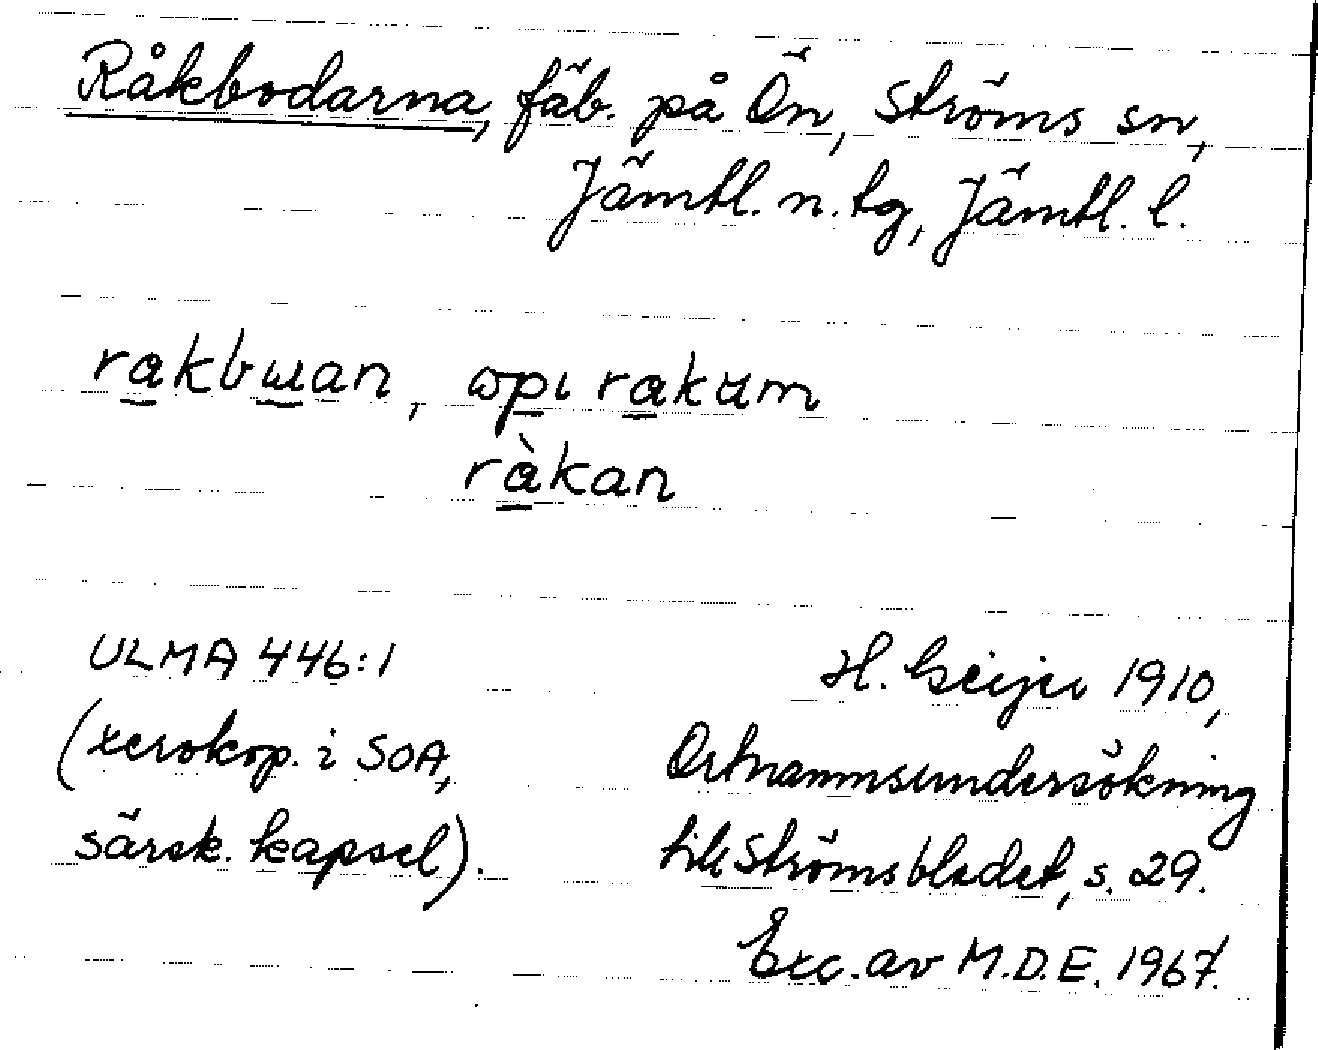 Råkbodarna, fäb. på Ön, Ströms sn,
Jämtl. n. tg, Jämtl. l.
rakbɯan, ɷpı rakum
ràkan
ULMA 446:1
(xerokop. i SOA,
särsk. kapsel).
H. Geijer 1910,
Ortnamnsundersökning
till Strömsbladet, s. 29.
Exc. av M.D.E. 1967.